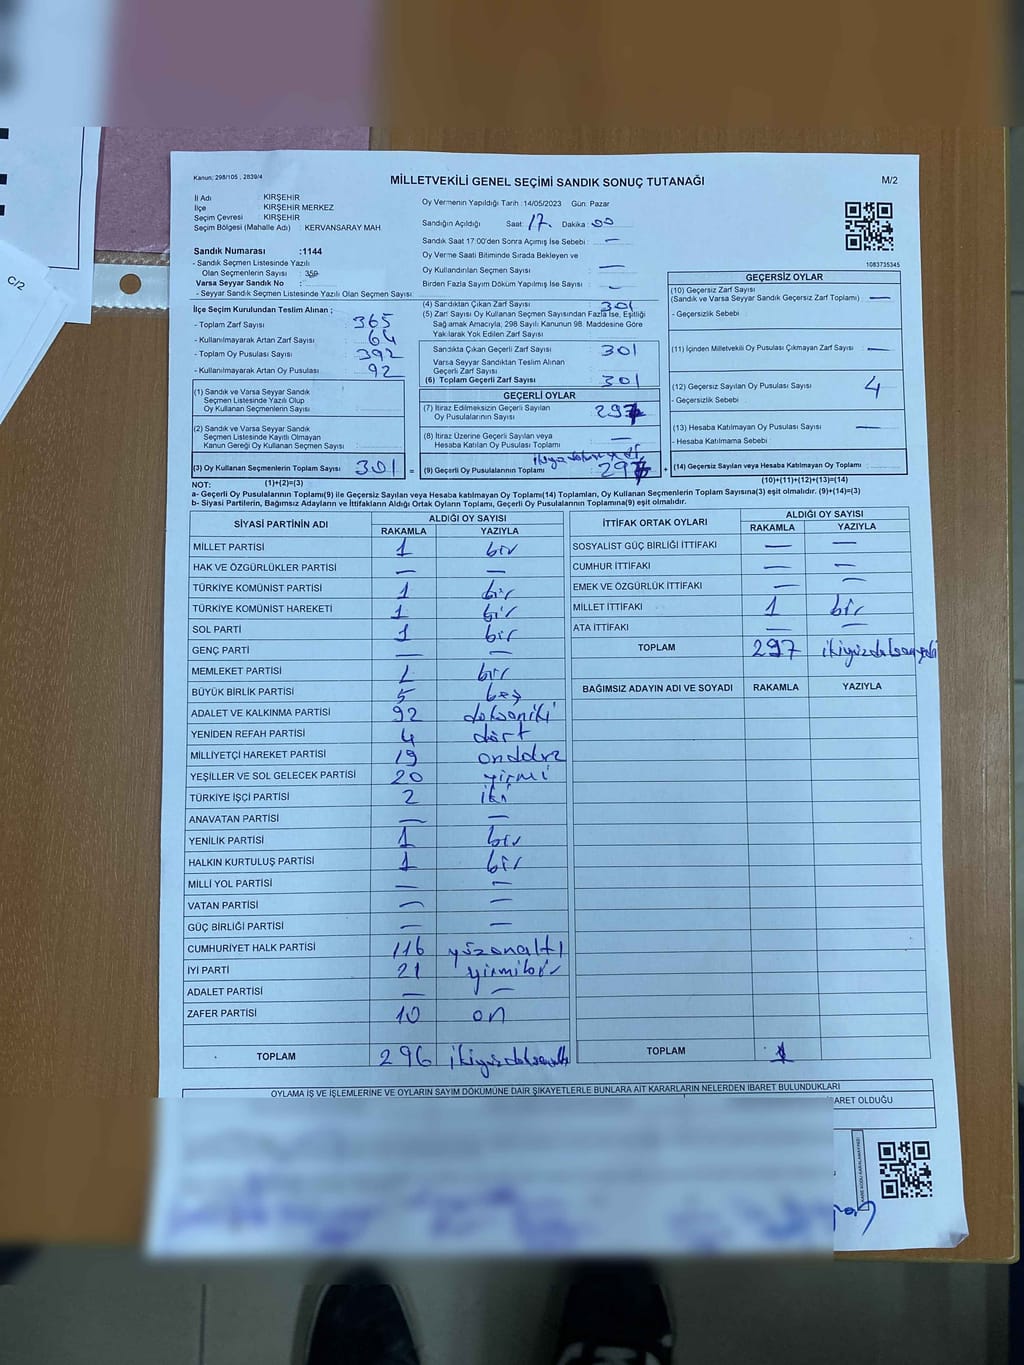 C/2
Kanun; 298/105 , 2839/4
MİLLETVEKİLİ GENEL SEÇİMİ SANDIK SONUÇ TUTANAĞI
M/2
İl Adı : KIRŞEHİR
İlçe : KIRŞEHİR MERKEZ
Seçim Çevresi : KIRŞEHİR
Seçim Bölgesi (Mahalle Adı) : KERVANSARAY MAH.
Oy Vermenin Yapıldığı Tarih :14/05/2023 Gün: Pazar
Sandığın Açıldığı Saat: 17 Dakika: 00
Sandık Saat 17:00'den Sonra Açımış İse Sebebi : —
Oy Verme Saati Bitiminde Sırada Bekleyen ve
Oy Kullandırılan Seçmen Sayısı : —
Birden Fazla Sayım Döküm Yapılmış İse Sayısı : —
Sandık Numarası :1144
- Sandık Seçmen Listesinde Yazılı
Olan Seçmenlerin Sayısı : 359
Varsa Seyyar Sandık No :
- Seyyar Sandık Seçmen Listesinde Yazılı Olan Seçmen Sayısı:
1083735345
İlçe Seçim Kurulundan Teslim Alınan ;
- Toplam Zarf Sayısı : 365
- Kullanılmayarak Artan Zarf Sayısı : 64
- Toplam Oy Pusulası Sayısı : 392
- Kullanılmayarak Artan Oy Pusulası : 92
(1) Sandık ve Varsa Seyyar Sandık
Seçmen Listesinde Yazılı Olup
Oy Kullanan Seçmenlerin Sayısı :
(2) Sandık ve Varsa Seyyar Sandık
Seçmen Listesinde Kayıtlı Olmayan
Kanun Gereği Oy Kullanan Seçmen Sayısı :
(3) Oy Kullanan Seçmenlerin Toplam Sayısı : 301 =
(1)+(2)=(3)
(4) Sandıktan Çıkan Zarf Sayısı : 301
(5) Zarf Sayısı Oy Kullanan Seçmen Sayısından Fazla İse, Eşitliği
Sağlamak Amacıyla, 298 Sayılı Kanunun 98. Maddesine Göre
Yakılarak Yok Edilen Zarf Sayısı :
Sandıkta Çıkan Geçerli Zarf Sayısı : 301
Varsa Seyyar Sandıktan Teslim Alınan
Geçerli Zarf Sayısı :
(6) Toplam Geçerli Zarf Sayısı : 301
GEÇERLİ OYLAR
(7) İtiraz Edilmeksizin Geçerli Sayılan
Oy Pusulalarının Sayısı : 297
(8) İtiraz Üzerine Geçerli Sayılan veya
Hesaba Katılan Oy Pusulası Toplamı : —
(9) Geçerli Oy Pusulalarının Toplamı : 297 +
GEÇERSİZ OYLAR
(10) Geçersiz Zarf Sayısı
(Sandık ve Varsa Seyyar Sandık Geçersiz Zarf Toplamı) : —
- Geçersizlik Sebebi :
(11) İçinden Milletvekili Oy Pusulası Çıkmayan Zarf Sayısı : —
(12) Geçersiz Sayılan Oy Pusulası Sayısı : 4
- Geçersizlik Sebebi :
(13) Hesaba Katılmayan Oy Pusulası Sayısı : —
- Hesaba Katılmama Sebebi :
(14) Geçersiz Sayılan veya Hesaba Katılmayan Oy Toplamı :
(10)+(11)+(12)+(13)=(14)
NOT:
a- Geçerli Oy Pusulalarının Toplamı(9) ile Geçersiz Sayılan veya Hesaba Katılmayan Oy Toplamı(14) Toplamları, Oy Kullanan Seçmenlerin Toplam Sayısına(3) eşit olmalıdır. (9)+(14)=(3)
b- Siyasi Partilerin, Bağımsız Adayların ve İttifakların Aldığı Ortak Oyların Toplamı, Geçerli Oy Pusulalarının Toplamına(9) eşit olmalıdır.
SİYASİ PARTİNİN ADI ALDIĞI OY SAYISI
RAKAMLA YAZIYLA
MİLLET PARTİSİ 1 bir
HAK VE ÖZGÜRLÜKLER PARTİSİ — —
TÜRKİYE KOMÜNİST PARTİSİ 1 bir
TÜRKİYE KOMÜNİST HAREKETİ 1 bir
SOL PARTİ 1 bir
GENÇ PARTİ — —
MEMLEKET PARTİSİ 1 bir
BÜYÜK BİRLİK PARTİSİ 5 beş
ADALET VE KALKINMA PARTİSİ 92 doksaniki
YENİDEN REFAH PARTİSİ 4 dört
MİLLİYETÇİ HAREKET PARTİSİ 19
YEŞİLLER VE SOL GELECEK PARTİSİ 20 yirmi
TÜRKİYE İŞÇİ PARTİSİ 2 iki
ANAVATAN PARTİSİ — —
YENİLİK PARTİSİ 1 bir
HALKIN KURTULUŞ PARTİSİ 1 bir
MİLLİ YOL PARTİSİ — —
VATAN PARTİSİ — —
GÜÇ BİRLİĞİ PARTİSİ — —
CUMHURİYET HALK PARTİSİ 116 yüzonaltı
İYİ PARTİ 21 yirmibir
ADALET PARTİSİ — —
ZAFER PARTİSİ 10 on
TOPLAM 296
İTTİFAK ORTAK OYLARI ALDIĞI OY SAYISI
RAKAMLA YAZIYLA
SOSYALİST GÜÇ BİRLİĞİ İTTİFAKI — —
CUMHUR İTTİFAKI — —
EMEK VE ÖZGÜRLÜK İTTİFAKI — —
MİLLET İTTİFAKI 1 bir
ATA İTTİFAKI — —
TOPLAM 297
BAĞIMSIZ ADAYIN ADI VE SOYADI RAKAMLA YAZIYLA
TOPLAM 1
OYLAMA İŞ VE İŞLEMLERİNE VE OYLARIN SAYIM DÖKÜMÜNE DAİR ŞİKAYETLERLE BUNLARA AİT KARARLARIN NELERDEN İBARET BULUNDUKLARI
BARET OLDUĞU